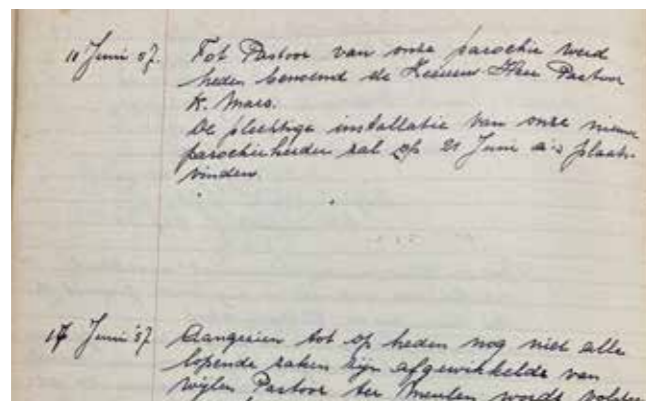 11 Juni '57. Tot Pastoor van onze parochie werd
heden benoemd de Zeereerw Heer Pastoor
K. Maes.
De plechtige installatie van onze nieuwe
parochieherder zal op 21 Juni a.s plaats-
vinden.
17 Juni '57 Aangezien tot op heden nog niet alle
lopende zaken zijn afgewikkelde van
wijlen Pastoor ter Meulen wordt